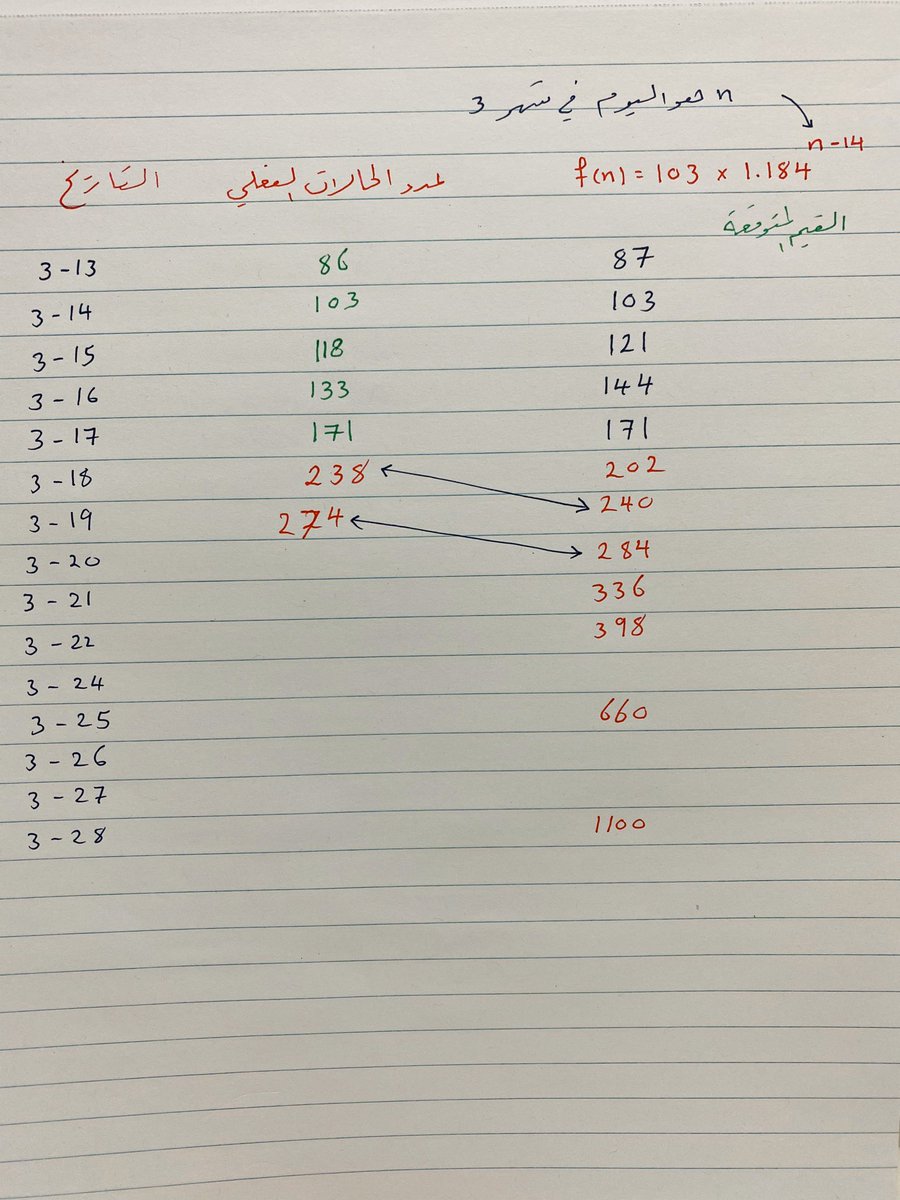 n هو اليوم في شهر 3
التاريخ عدد الحالات الفعلي f(n) = 103 x 1.184^(n-14)
القيم المتوقعة
3-13 86 87
3-14 103 103
3-15 118 121
3-16 133 144
3-17 171 171
3-18 238 202
3-19 274 240
3-20 284
3-21 336
3-22 398
3-24
3-25 660
3-26
3-27
3-28 1100